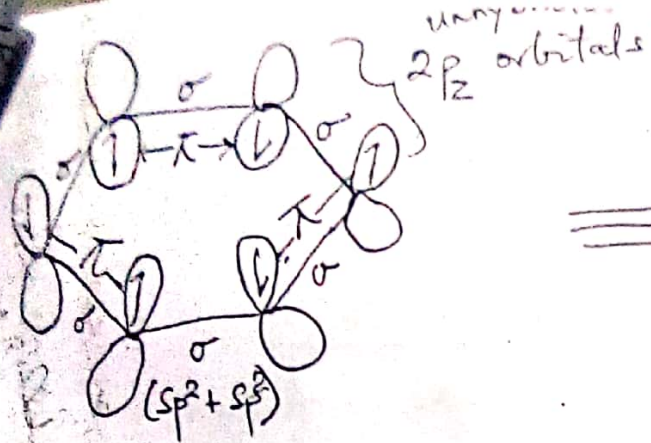 2pz orbitals
σ
σ
σ
π
π
π
σ
σ
σ
(sp²+sp²)